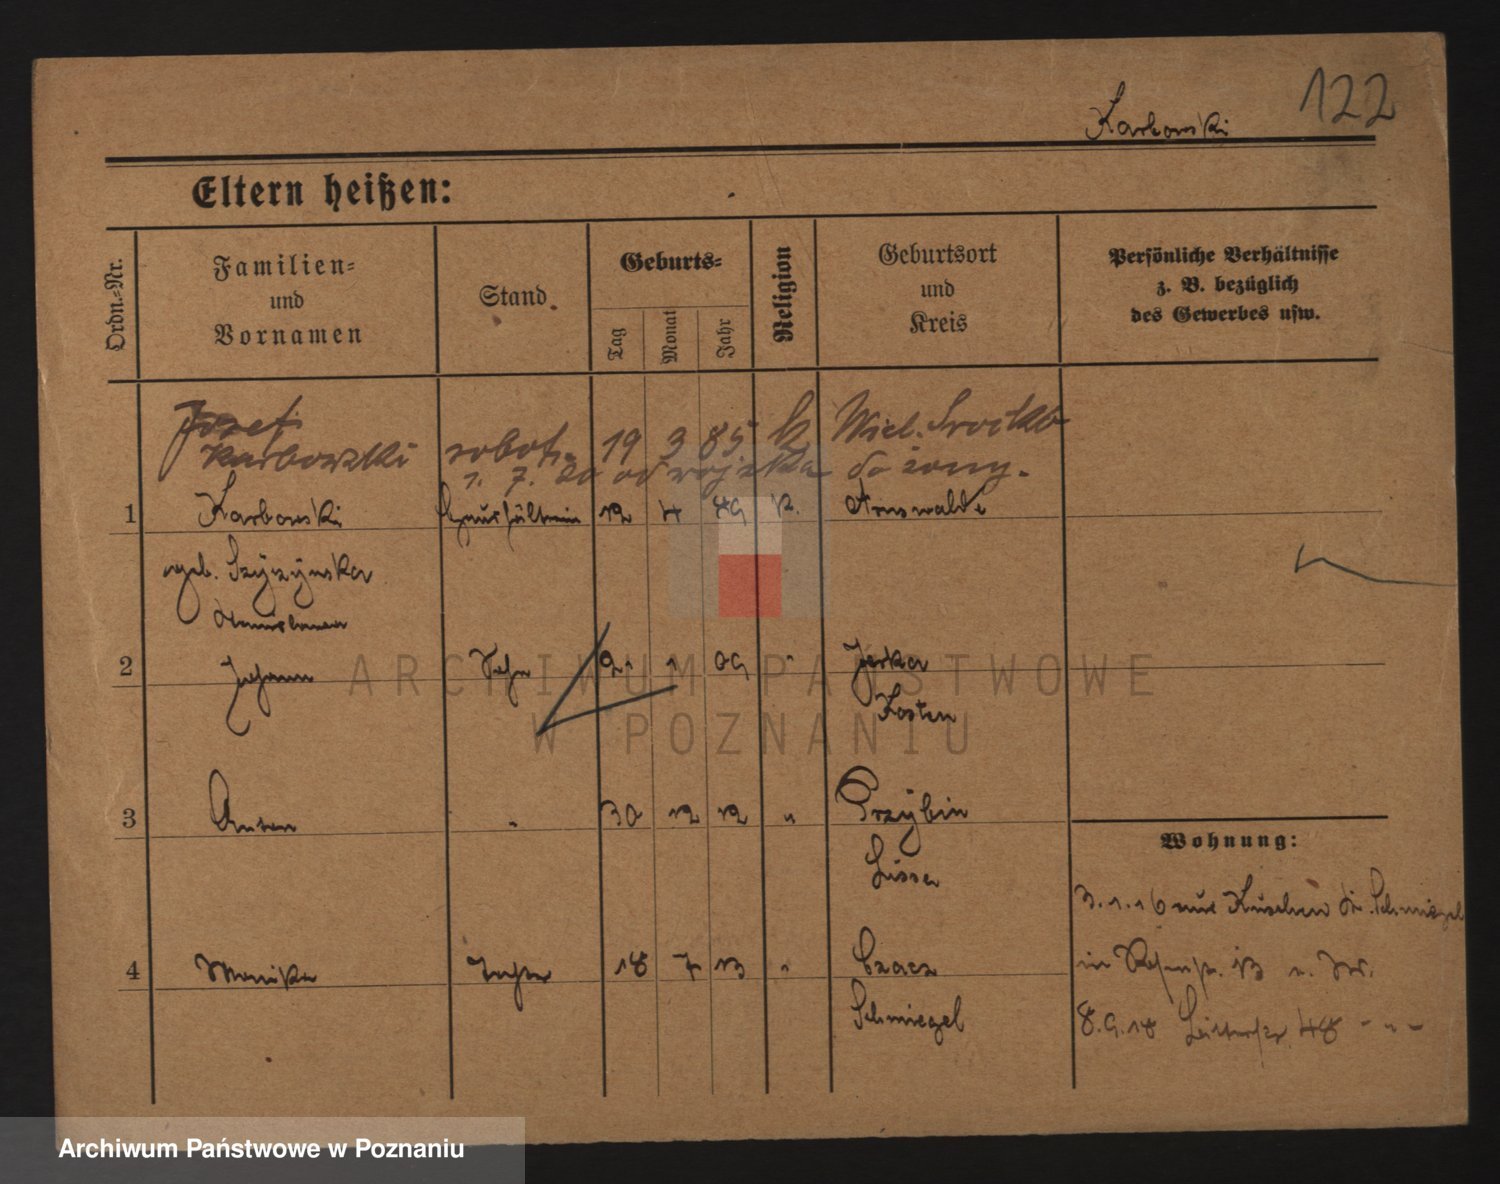 122
Karbowski
Eltern heißen:
Ordn.-Nr.
Familien- und Vornamen
Stand
Geburts-
Tag
Monat
Jahr
Religion
Geburtsort und Kreis
Persönliche Verhältnisse z. B. bezüglich des Gewerbes usw.
Józef Karbowski robotn. 19 3 85 k Wiel. Srock
1. 7. 20 od wojska do żony.
1 Karbowski 12 4 89 k. Arnswalde
geb. Szyzynska
Stanislawa
2 Johann Sohn 21 1 09 " Jerka
Kosten
3 Anton " 30 12 12 " Przybin
Lissa
Wohnung:
3.1.16 aus Kuschen Kr. Schmiegel
4 Monika Tochter 18 7 13 " Czacz
in 13
Schmiegel
8.9.18 48 - " -
ARCHIWUM PAŃSTWOWE
W POZNANIU
Archiwum Państwowe w Poznaniu